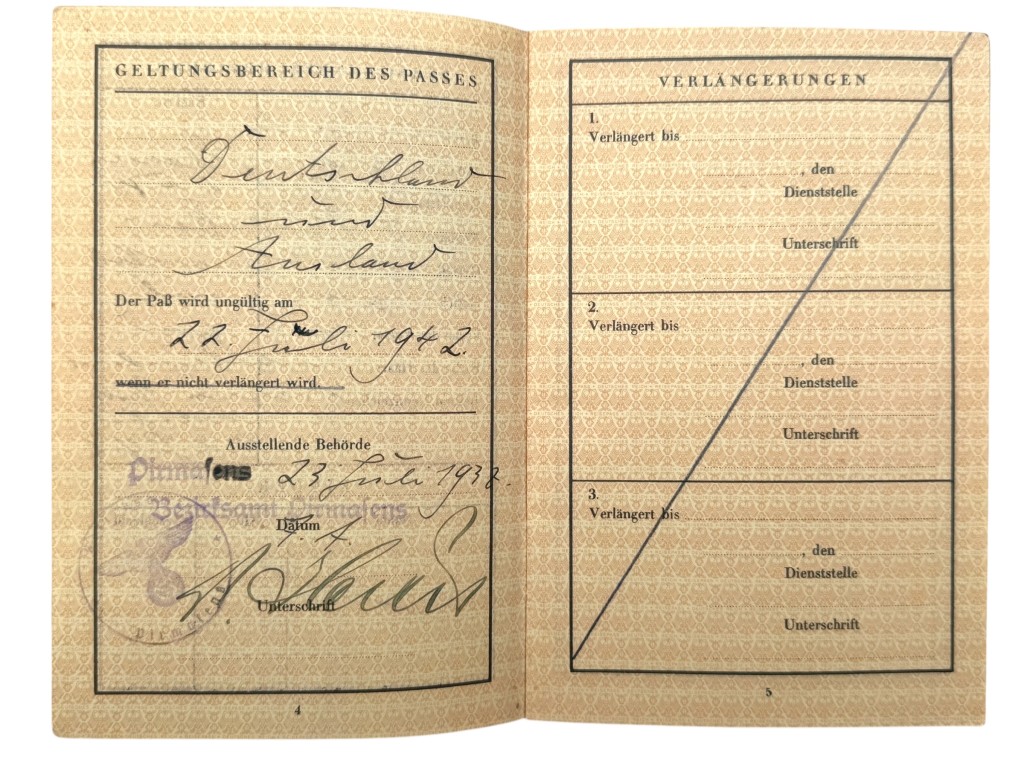 GELTUNGSBEREICH DES PASSES
Deutschland
und
Ausland
Der Paß wird ungültig am
22. Juli 1942.
wenn er nicht verlängert wird.
Ausstellende Behörde
Pirmasens 23. Juli 1937.
Bezirksamt Pirmasens
Datum
Unterschrift
Pirmasens
4
VERLÄNGERUNGEN
1.
Verlängert bis
, den
Dienststelle
Unterschrift
2.
Verlängert bis
, den
Dienststelle
Unterschrift
3.
Verlängert bis
, den
Dienststelle
Unterschrift
5